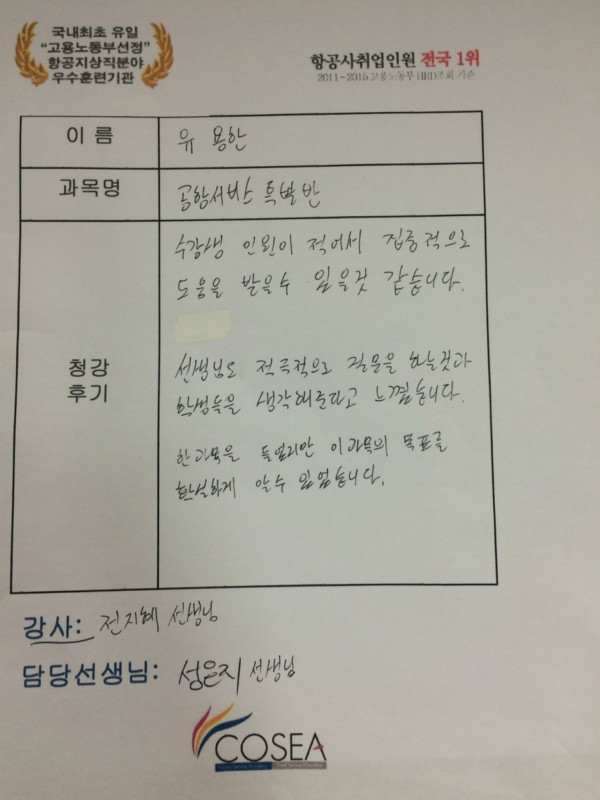 국내최초 유일
"고용노동부선정"
항공지상직분야
우수훈련기관
항공사취업인원 전국 1위
2011~2015 고용노동부 HRD조회 기준
이 름
유 용한
과목명
공항서비스 특별반
청강
후기
수강생 인원이 적어서 집중적으로
도움을 받을수 있을것 같습니다.
선생님도 적극적으로 질문을 하는것과
학생들을 생각해준다고 느꼈습니다.
한과목을 들었지만 이과목의 목표를
확실하게 알수 있었습니다.
강사: 전지혜 선생님
담당선생님: 성은지 선생님
COSEA